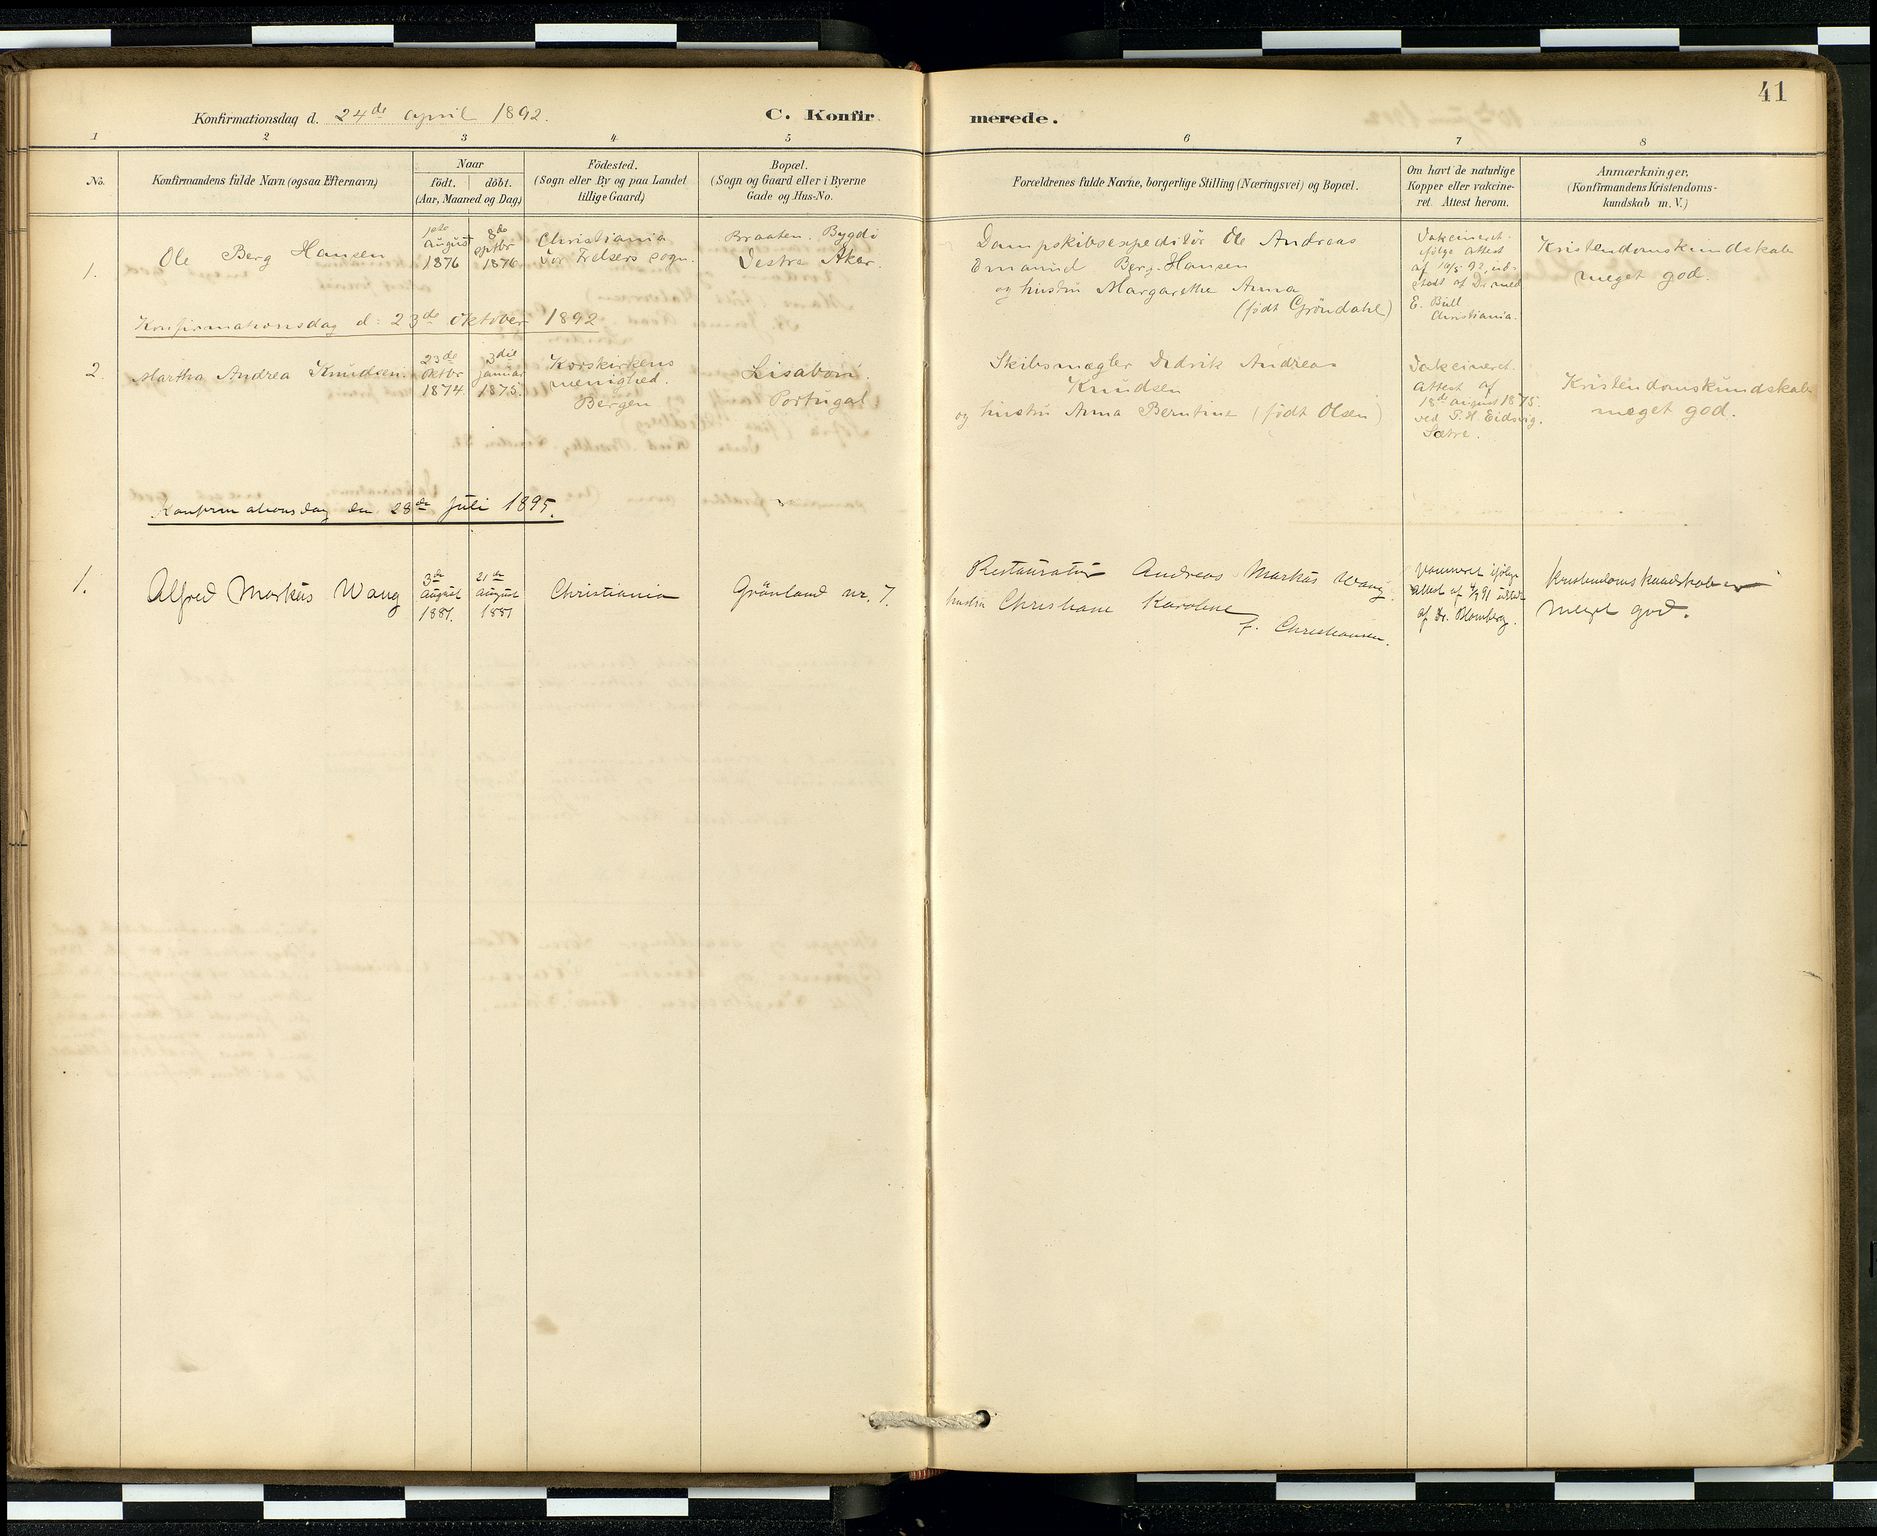 41
Konfirmationsdag d. 24de april 1892.
C. Konfirmerede.
1 2 3 4 5 6 7 8
No.
Konfirmandens fulde Navn (ogsaa Efternavn)
Naar
födt. döbt.
(Aar, Maaned og Dag)
Födested.
(Sogn eller By og paa Landet
tillige Gaard)
Bopæl.
(Sogn og Gaard eller i Byerne
Gade og Hus-No.
Forældrenes fulde Navne, borgerlige Stilling (Næringsvei) og Bopæl.
Om havt de naturlige
Kopper eller vakcine-
ret. Attest herom.
Anmærkninger,
(Konfirmandens Kristendoms-
kundskab m. V.)
1.
Ole Berg Hansen
1ste
august
1876
8de
septbr
1876.
Christiania
Vor Frelsers sogn.
Braaten. Bygdö
Vestre Aker.
Dampskibsexpeditör Ole Andreas
Emanuel Berg-Hansen
og hustru Margarethe Anna
(født Gröndahl)
Vakcineret
ifölge attest
af 10/3 92, ud-
stedt af Dr. med
E. Bull
Christiania.
Kristendomskundskab
meget god.
Konfirmationsdag d. 23de oktober 1892
2.
Martha Andrea Knudsen.
23de
oktbr
1874.
3die
januar
1875.
Korskirkens
menighed.
Bergen
Lisabon.
Portugal
Skibsmægler Dedrik Andreas
Knudsen
og hustru Anna Berntine (födt Olsen)
Vakcineret.
Attest af
18de august 1875.
ved S. H. Eidsvig.
Sætre.
Kristendomskundskab
meget god.
Konfirmationsdag den 28de Juli 1895.
1.
Alfred Markus Wang
3de
august
1881.
21de
august
1881
Christiania
Grönland nr. 7.
Restauratör Andreas Markus Wang.
hustru Christiane Karoline
f. Christiansen.
Vaccineret ifölge
attest af 4/9 91
af Dr. Blomberg.
Kristendomskundskab
Meget god.